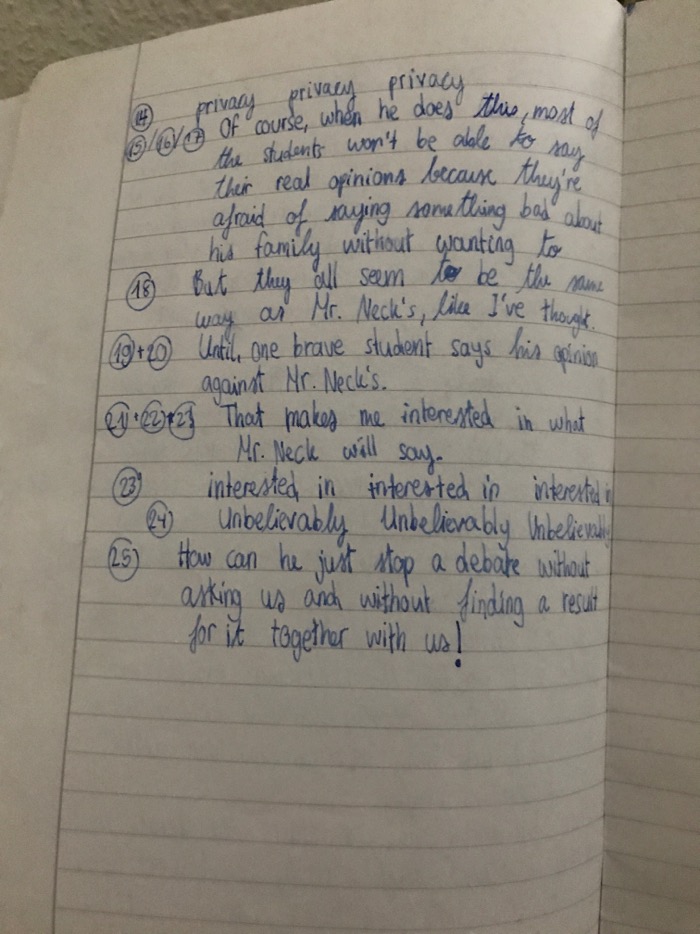 (14) privacy privacy privacy
(15)/(16)/(17) Of course, when he does this, most of
the students won't be able to say
their real opinions because they're
afraid of saying something bad about
his family without wanting to
(18) But they all seem to be the same
way as Mr. Neck's, like I've thought.
(19)+(20) Until, one brave student says his opinion
against Mr. Neck's.
(21)+(22)+(23) That makes me interested in what
Mr. Neck will say.
(23) interested in interested in interested in
(24) Unbelievably Unbelievably Unbelievably
(25) How can he just stop a debate without
asking us and without finding a result
for it together with us!